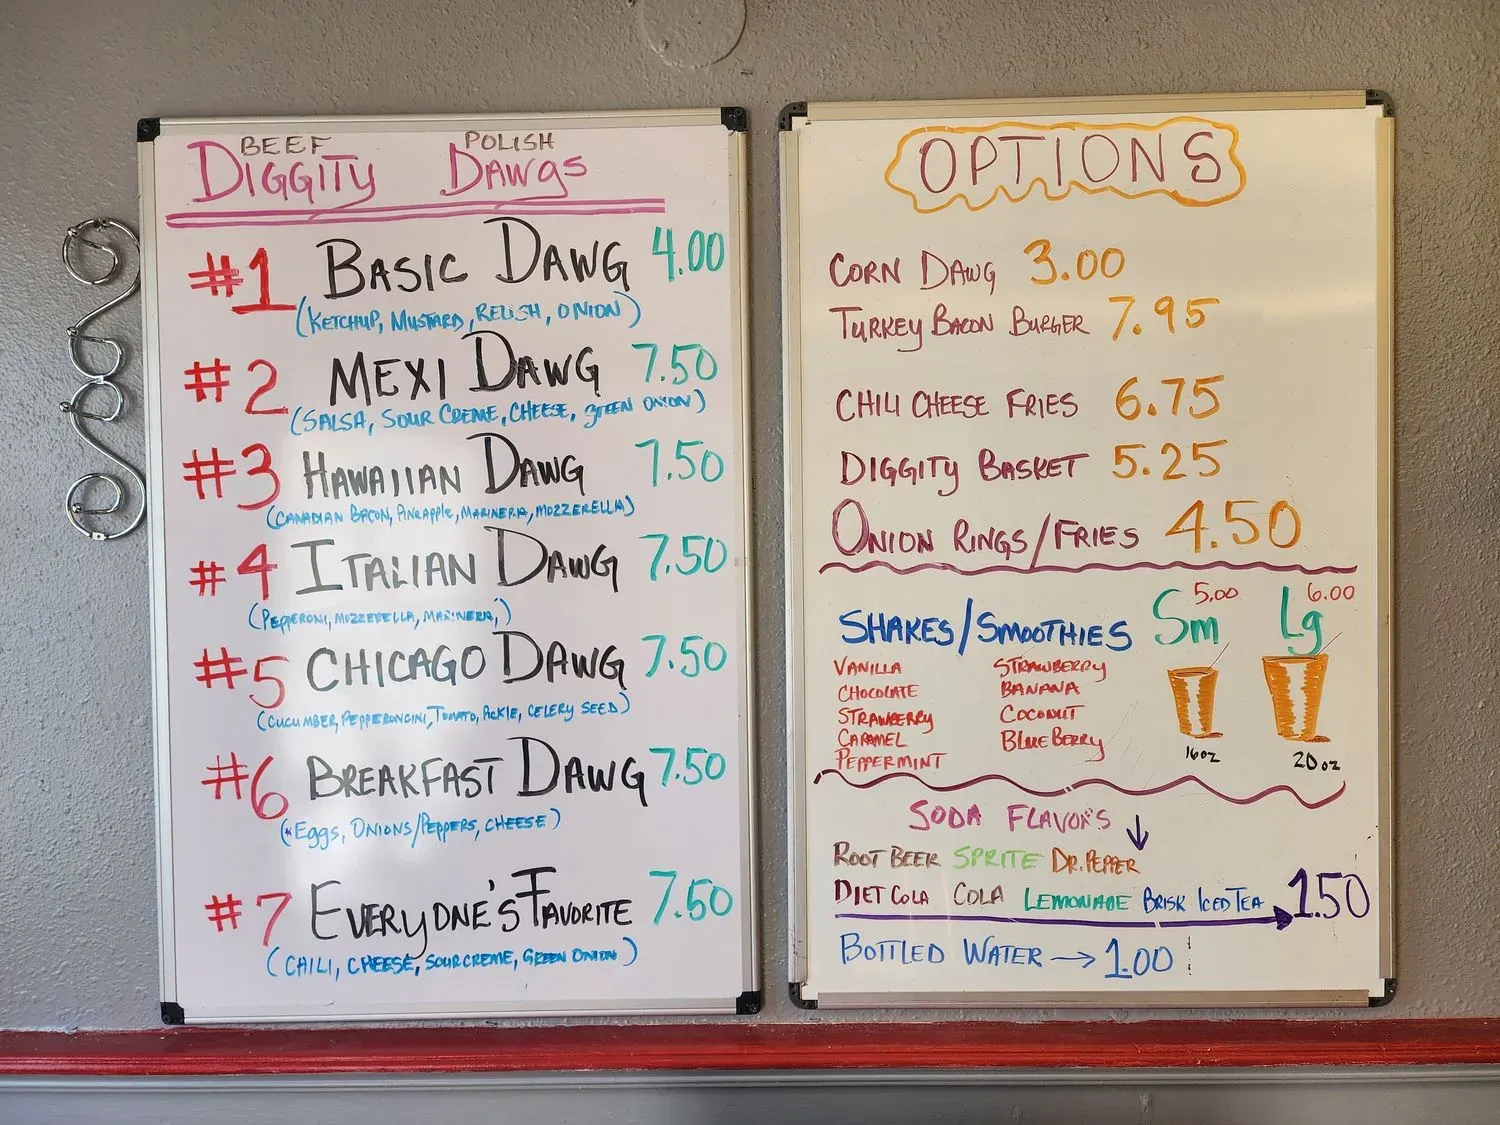 BEEF POLISH
DIGGITY DAWGS
#1 BASIC DAWG 4.00
(KETCHUP, MUSTARD, RELISH, ONION)
#2 MEXI DAWG 7.50
(SALSA, SOUR CREME, CHEESE, green ONION)
#3 HAWAIIAN DAWG 7.50
(CANADIAN BACON, PINEAPPLE, MARINERA, MOZZERELLA)
#4 ITALIAN DAWG 7.50
(PEPPERONI, MOZZERELLA, MARINERA,)
#5 CHICAGO DAWG 7.50
(CUCUMBER, PEPPERONCINI, TOMATO, PICKLE, CELERY SEED)
#6 BREAKFAST DAWG 7.50
(*EGGS, ONIONS/PEPPERS, CHEESE)
#7 EVERYONE'S FAVORITE 7.50
(CHILI, CHEESE, SOUR CREME, GREEN ONION)
OPTIONS
CORN DAWG 3.00
TURKEY BACON BURGER 7.95
CHILI CHEESE FRIES 6.75
DIGGITY BASKET 5.25
ONION RINGS/FRIES 4.50
SHAKES/SMOOTHIES Sm 5.00 Lg 6.00
VANILLA STRAWBERRY
CHOCOLATE BANANA
STRAWBERRY COCONUT
CARAMEL BLUEBERRY
PEPPERMINT
16oz 20oz
SODA FLAVORS ↓
ROOT BEER SPRITE DR. PEPPER
DIET COLA COLA LEMONADE BRISK ICED TEA 1.50
BOTTLED WATER → 1.00